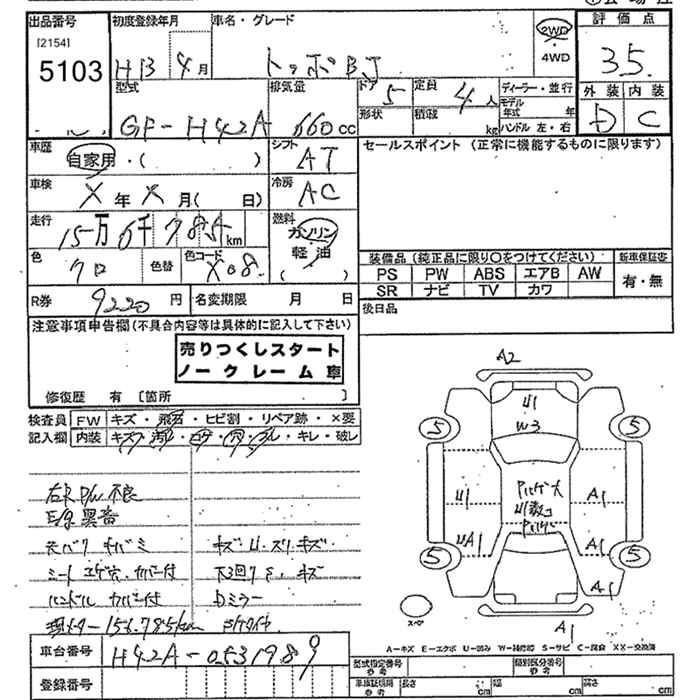 出品番号
[2154]
5103
初度登録年月
H13 4月
車名・グレード
トッポBJ
2WD
・
4WD
評価点
3.5
外装 内装
D C
型式
GF-H42A
排気量
660cc
ドア 5
形状
定員 4人
積載 kg
ディーラー・並行
モデル年式 年
ハンドル 左・右
車歴
自家用・( )
シフト
AT
車検
X年X月( 日)
冷房
AC
走行
15万6千785km
燃料
ガソリン
軽油
( )
色
クロ
色替
色コード
X08
R券
9220円
名変期限 月 日
セールスポイント(正常に機能するものに限ります)
装備品(純正品に限り〇をつけてください)
新車保証書
PS PW ABS エアB AW
SR ナビ TV カワ
有・無
後日品
注意事項申告欄(不具合内容等は具体的に記入して下さい)
売りつくしスタート
ノークレーム車
修復歴 有 [箇所 ]
検査員
記入欄
FW キズ・飛石・ヒビ割・リペア跡・×要
内装 キズ・汚レ・コゲ・穴・スレ・キレ・破レ
右R P/W 不良
E/G 異音
キズ・U・スリキズ
シート コゲ穴・カバー付
ハンドル カバー付
Dミラー
現メーター 156,785km
A2
U1
W3
5
5
U1
A1
UA1
A1
5
5
A1
A1
スペア
A-キズ E-エクボ U-凹み W-補修跡 S-サビ C-腐食 XX-交換済
車台番号
H42A-0531989
登録番号
型式指定番号
参考
類別区分番号
参考
車検証積用
参考
長さ cm
幅 cm
高さ cm